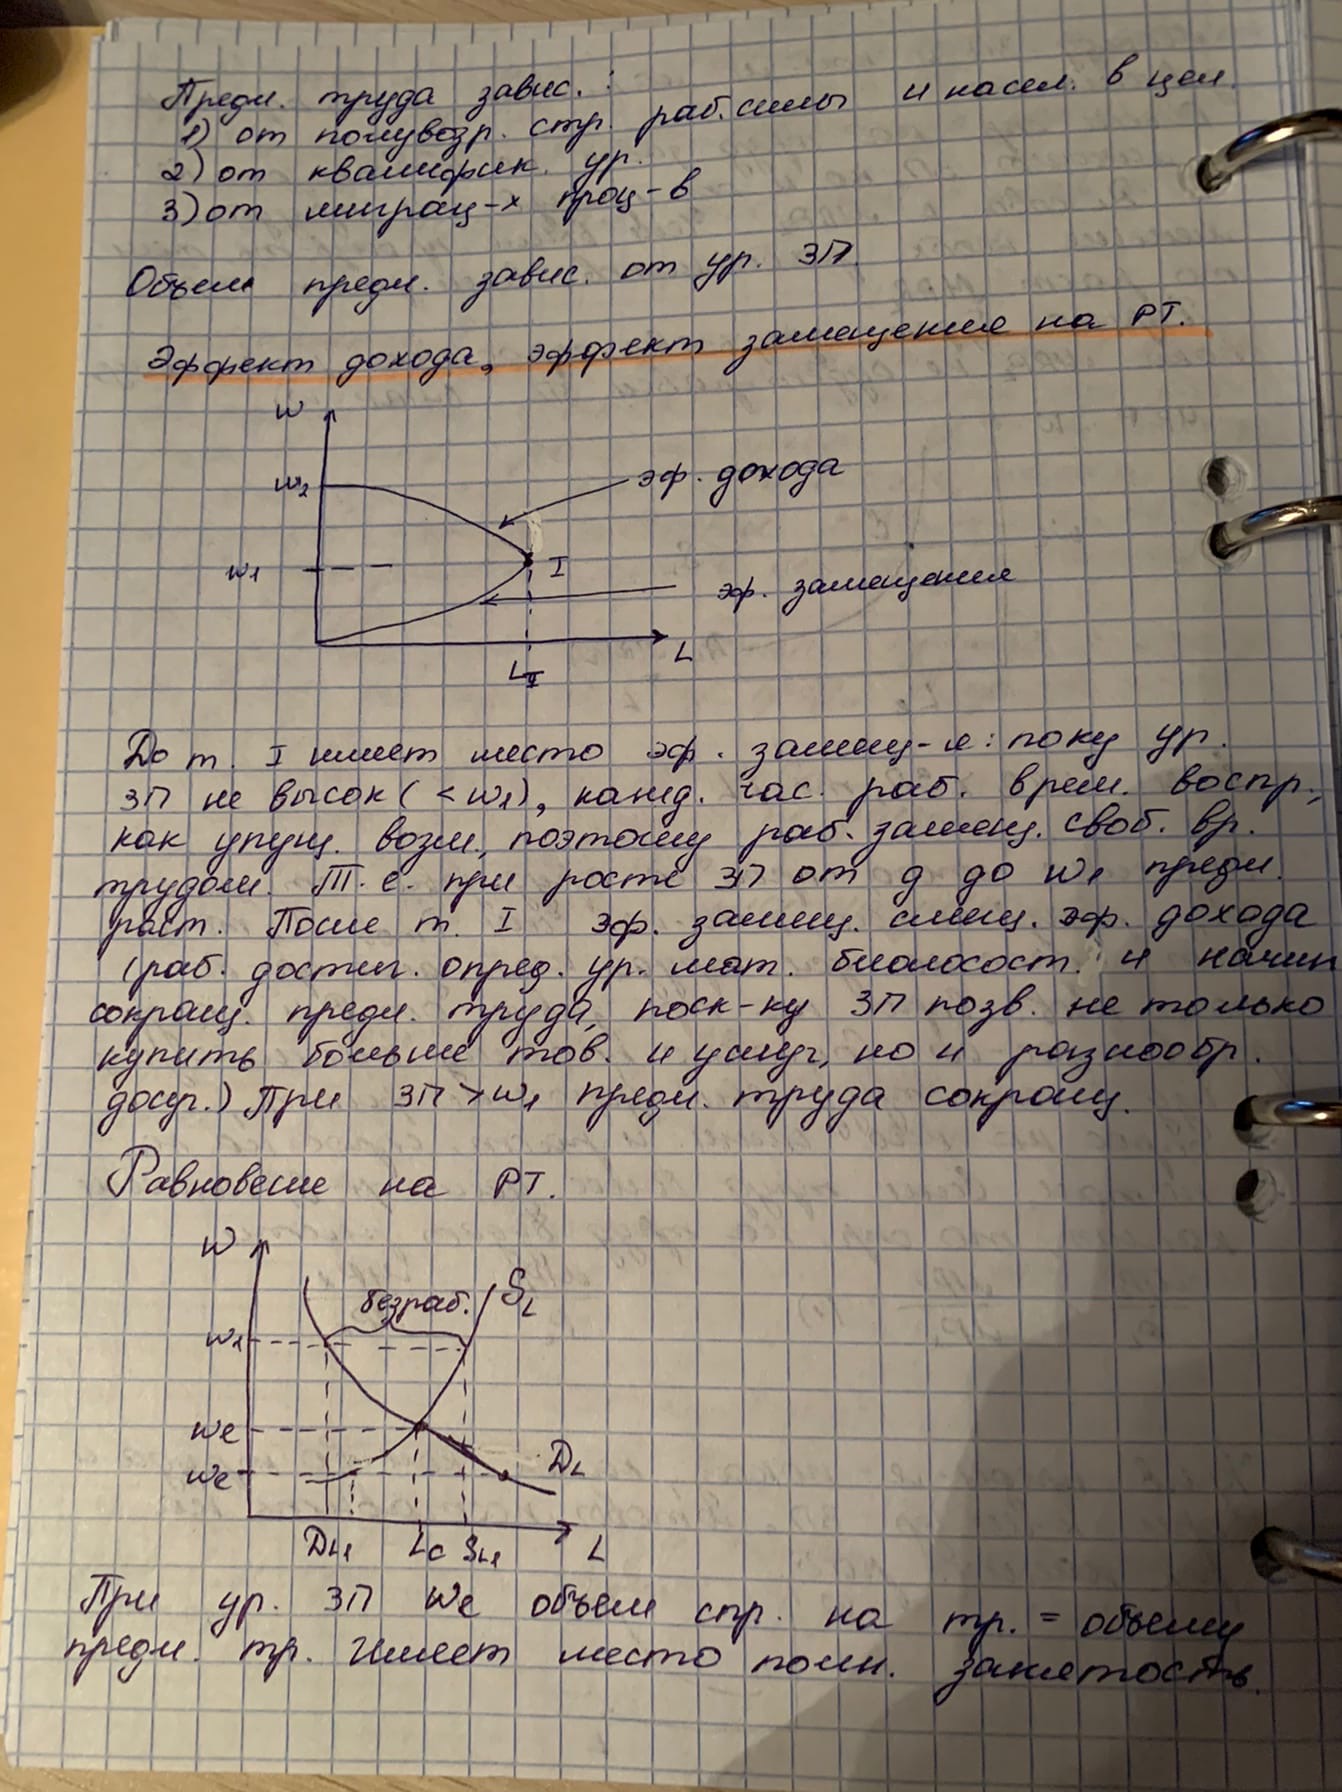 Предл. труда завис.:
1) от половозр. стр. раб. силы и насел. в цел.
2) от квалифик. ур.
3) от миграц-х проц-в
Объем предл. завис. от ур. ЗП.
Эффект дохода, эффект замещения на РТ.
w
w2
эф. дохода
w1
I
эф. замещения
L
LI
До т. I имеет место эф. замещ-я: поку ур.
ЗП не высок (< w1), кажд. час. раб. врем. воспр.,
как упущ. возм., поэтому раб. замещ. своб. вр.
трудом. Т.е. при росте ЗП от д до w1 предл.
раст. После т. I эф. замещ. смещ. эф. дохода
(раб. достиг. опред. ур. мат. благосост. и начин
сокращ. предл. труда, поск-ку ЗП позв. не только
купить больше тов. и услуг, но и разнообр.
досуг.) При ЗП > w1 предл. труда сокращ.
Равновесие на РТ.
w
безраб.
SL
w1
we
we
DL
DL1
Lc
SL1
L
При ур. ЗП we объем спр. на тр. = объему
предл. тр. Имеет место полн. занятость.